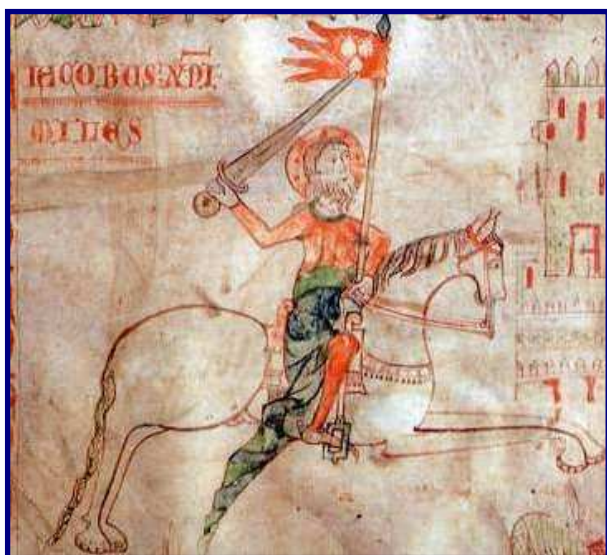 IACOBUS XPI
MILES